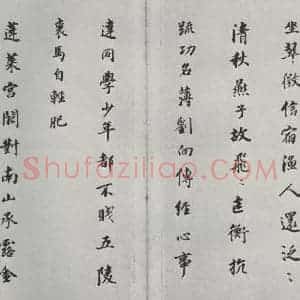 坐翠微信宿漁人還泛〻
清秋燕子故飛〻匡衡抗
疏功名薄劉向傳經心事
違同學少年都不賤五陵
裘馬自輕肥
蓬萊宮闕對南山承露金
Shufaziliao.com